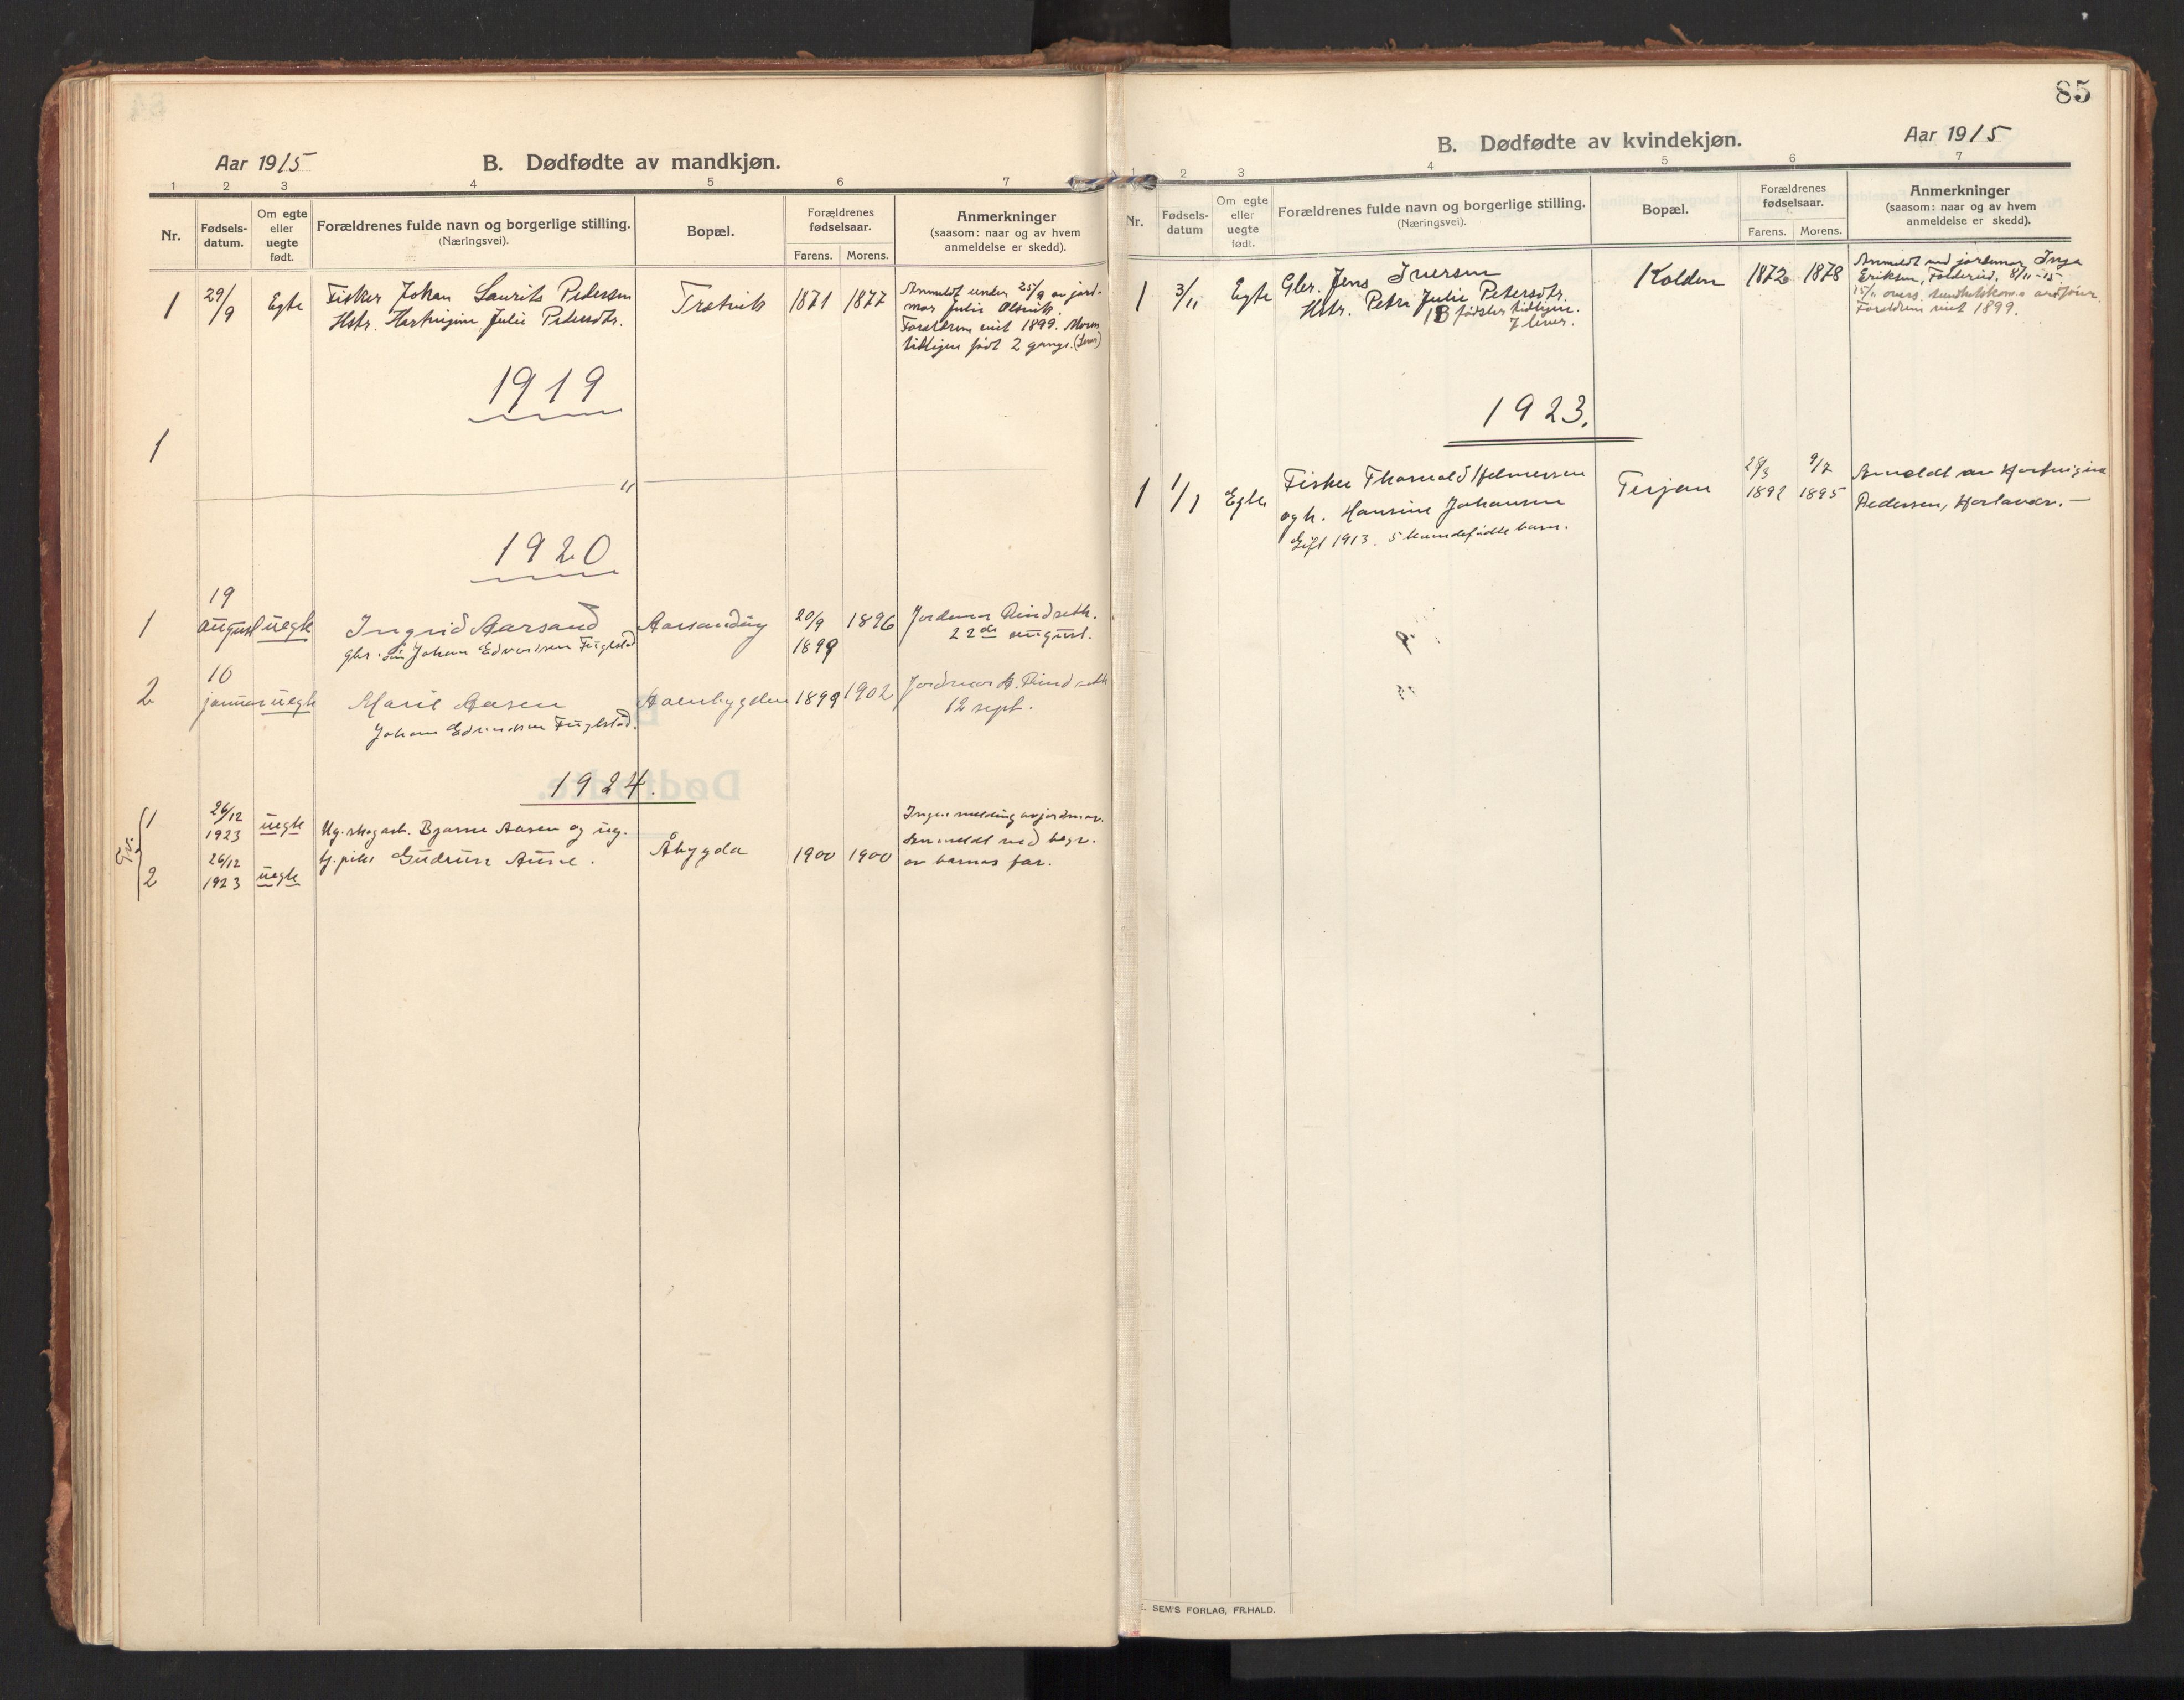 Aar 1915
B. Dødfødte av mandkjøn.
1 2 3 4 5 6 7
Nr.
Fødsels-
datum.
Om egte
eller
uegte
født.
Forældrenes fulde navn og borgerlige stilling.
(Næringsvei).
Bopæl.
Forældrenes
fødselsaar.
Farens. Morens.
Anmerkninger
(saasom: naar og av hvem
anmeldelse er skedd).
1 29/9 Egte Fisker Johan Laurits Pedersen
Hstr. Julie Pedersdtr.
1871 1877
Anmeldt under 25/9 av jord-
mor Julie
Forældrene viet 1899. Moren
tidligere født 2 gange.
1919
1
"
1920
1 19
august uegte Ingrid Aarsand
gbr. søn Johan Edvardsen Fuglstad
20/9
1899 1896
Jordmor Rindseth.
22de august.
2 10
januar uegte Marie Aasen
Johan Edvardsen Fuglstad.
Aabygden 1899 1902
Jordmor Rindseth
12 sept.
1924.
Tv.
1 26/12
1923 uegte
2 26/12
1923 uegte
Ug. skogarb. Bjarne Aasen og ug.
tj. pike Gudrun Aune.
Åbygda 1900 1900
Ingen melding av jordmor.
Anmeldt ved begr.
av barnas far.
85
B. Dødfødte av kvindekjøn.
Aar 1915
1 2 3 4 5 6 7
Nr.
Fødsels-
datum
Om egte
eller
uegte
født.
Forældrenes fulde navn og borgerlige stilling.
(Næringsvei).
Bopæl.
Forældrenes
fødselsaar.
Farens. Morens.
Anmerkninger
(saasom: naar og av hvem
anmeldelse er skedd).
1 3/11 Egte Gbr. Jens Iversen
Hstr. Petra Julie Petersdtr.
13 fødsler tidligere.
7 lever.
Kolden 1872 1878
Anmeldt ved jordemor Inga
Eriksen, Foldereid, 8/11-15
Forældrene viet 1899.
1923.
1 1/1 Egte Fisker Thorvald Hjelmersen
og h. Hansine Johansen
Gift 1913. 5 levendefødte barn.
Terjan
28/3
1892
9/7
1895
Anmeldt av
Pedersen,
E. SEM'S FORLAG, FR.HALD.